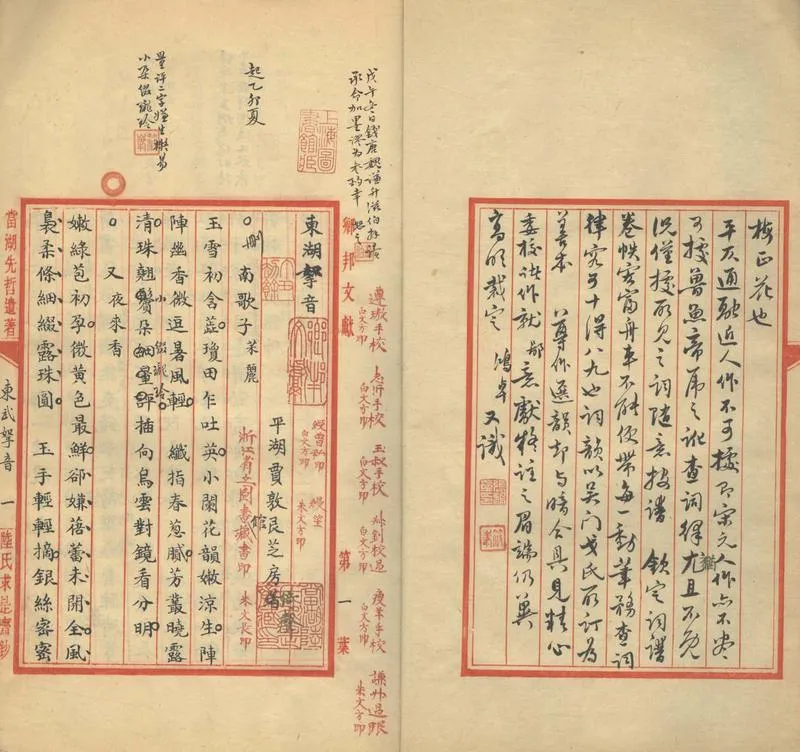 梅正花也
平仄通融近人作不可據即宋元人作亦不盡
可據魯魚帝虎之訛查詞律猶尤且不免
況僅據所見之詞隨意按譜 欽定詞譜
卷帙宏富舟車不能便帶每一動筆務查詞
律宏可十得八九也詞韻以吳門戈氏所訂為
善本 尊作選韻却與暗合具見精心
委校諸作就鄙意獻疑註之眉端仍冀
高明裁定 鴻卓又識
遵璈手校 白文方印
白文方印
玉叔手校 白文方印
白文方印
瘦羊手校 白文方印
朱文方印
戊午冬日錢唐魏謙升滋伯拜讀
承命加墨謬為
鄉邦文獻 第一葉
上海圖書館藏
起乙卯夏
量評二字嫌生擬易
小朵低瓏玲
東湖挐音
平湖賈敦艮芝房
白文方印
朱文方印
刪南歌子 茉麗
浙江省立圖書館藏書印 朱文長印
玉雪初含蕊瓊田乍吐英小闌花韻嫩涼生陣
陣幽香微逗暑風輕 纖指春蔥膩芳叢曉露
清珠翹鬢朵細量評插向烏雲對鏡看分明
小低瓏玲
又 夜來香
嫩綠苞初孕微黃色最鮮郤嫌蓓蕾未開全風
裊柔條細綴露珠圓 玉手輕輕摘銀絲密密
當湖先哲遺著 東武挐音 一 陸氏求是齋鈔